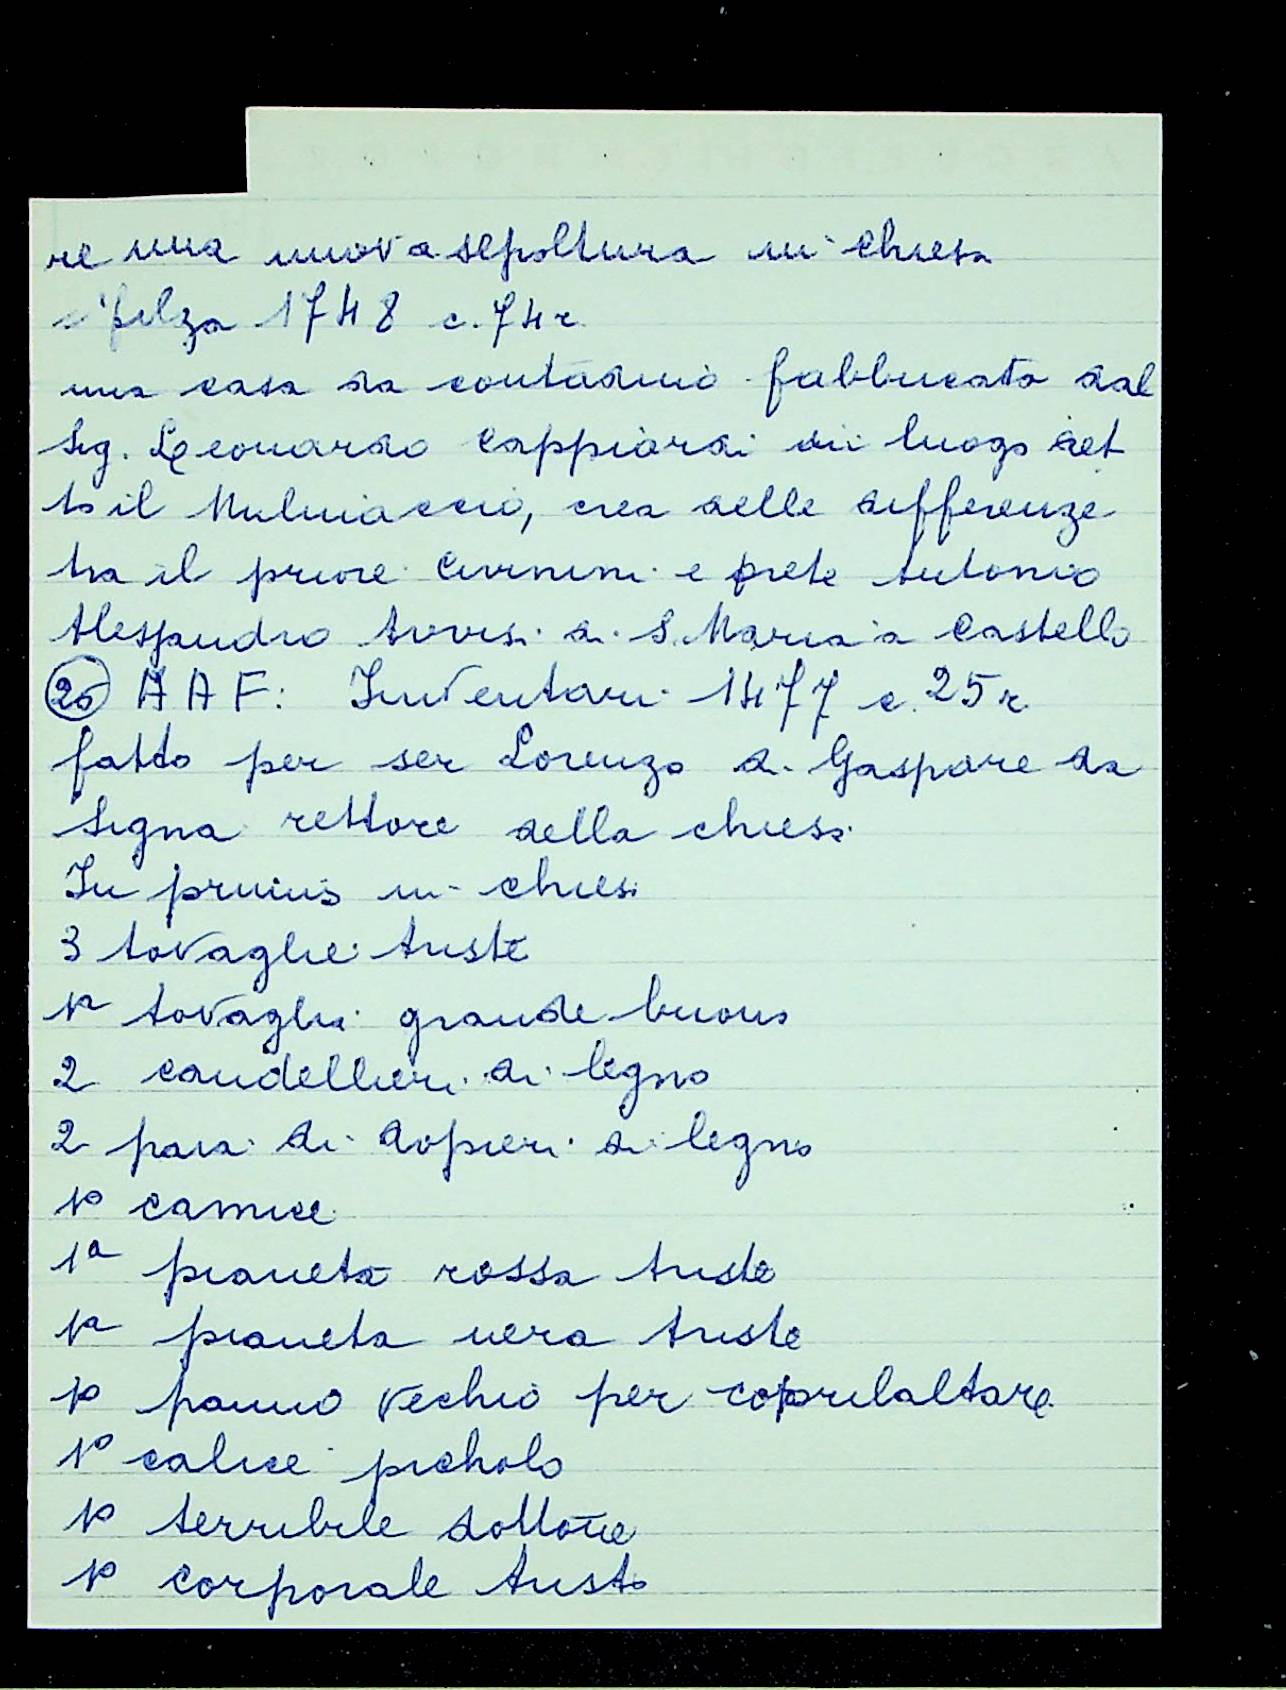 re una nuova sepoltura in chiesa
filza 1748 c. 74 r.
una casa da contadino fabbricata dal
Sig. Leonardo Cappiardi in luogo det
to il Mulinaccio, crea delle differenze
tra il priore Civinini e prete Antonio
Alessandro Arrisi di S. Maria a Castello
20 A A F: Inventari 1477 c. 25 r.
fatto per ser Lorenzo di Gaspare da
Signa rettore della chiesa
In primis in chiesa
3 tovaglie triste
1a tovaglia grande buona
2 candellieri di legno
2 paia di dopieri di legno
1o camice
1a pianeta rossa triste
1a pianeta nera triste
1o panno vechio per coprilaltare
1o calice picholo
1o terribile dottone
1o corporale tristo